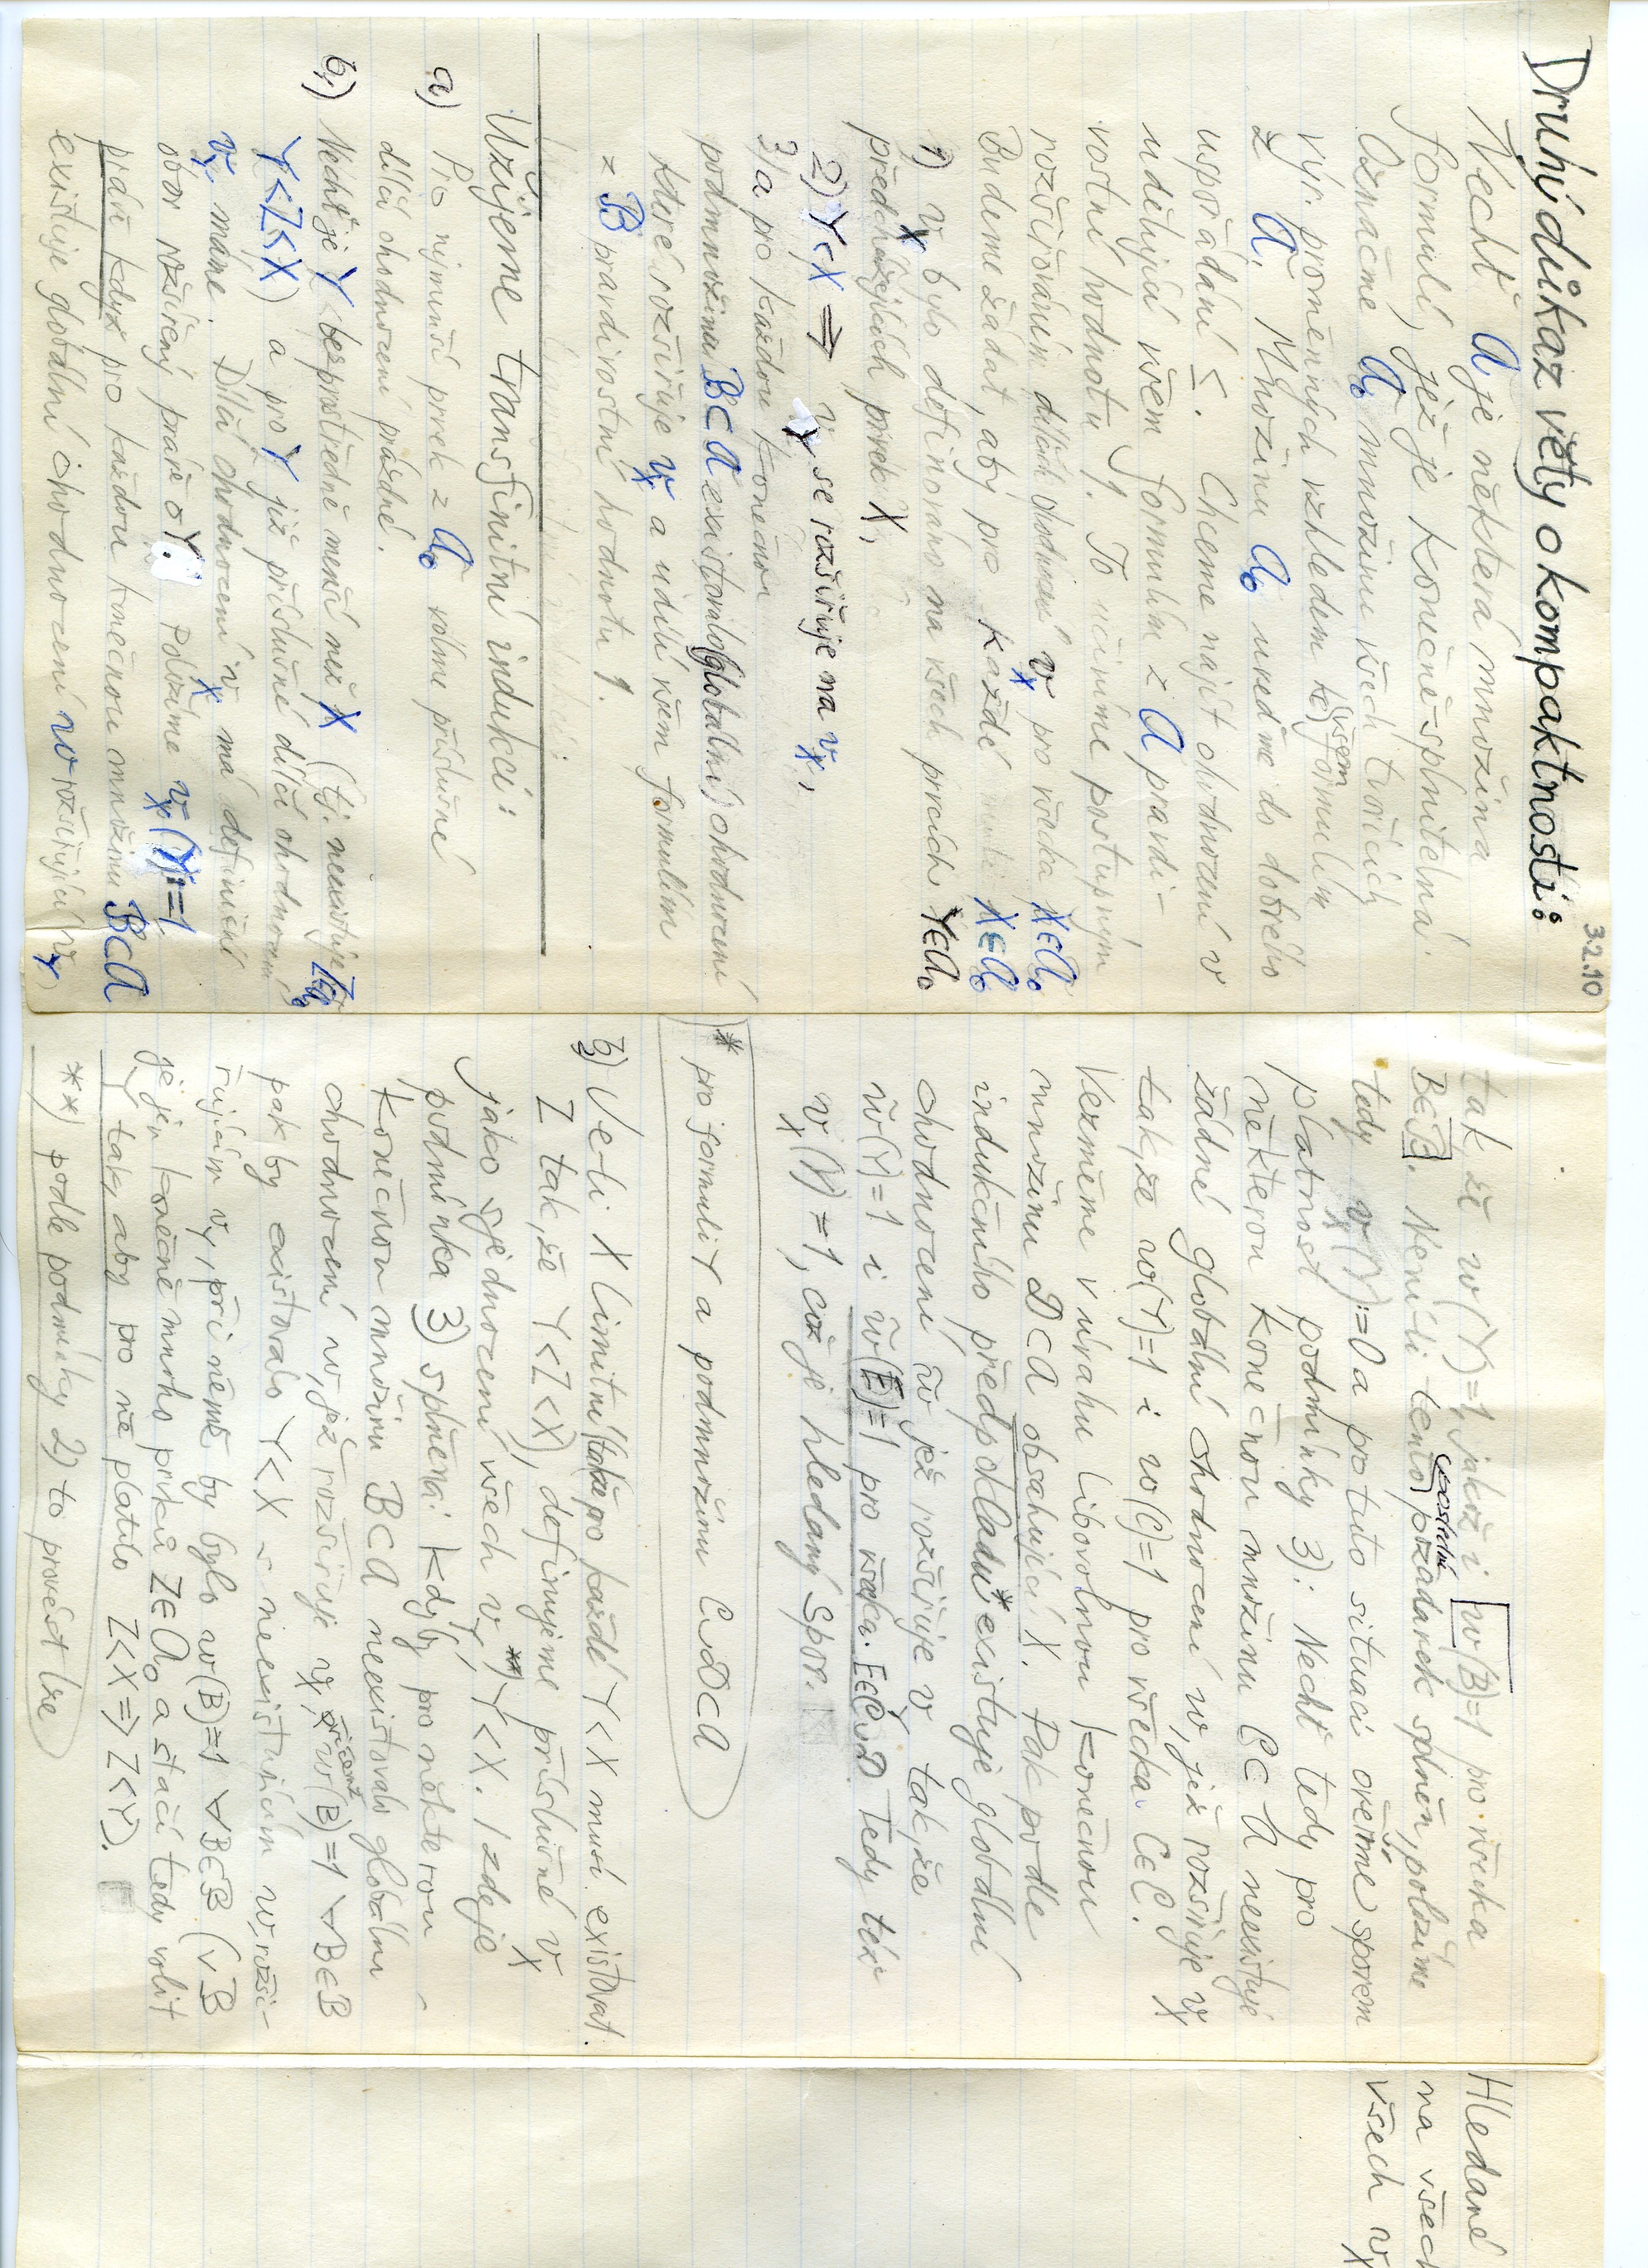 3.2.10
Druhý důkaz věty o kompaktnosti:
Nechť A je některá množina
formulí, jež je konečně-splnitelná.
Označme A₀ množinu všech tvořících
výr. proměnných vzhledem ke všem formulím
z A. Množinu A₀ uveďme do dobrého
uspořádání ≤. Chceme najít ohodnocení v
udělující všem formulím z A pravdi-
vostní hodnotu 1. To učiníme postupným
rozšiřováním dílčích ohodnocení vₓ pro všecka X∈A₀
Budeme žádat, aby pro každé X∈A₀
1) vₓ bylo definováno na všech prvcích Y∈A₀
předcházejících prvek X,
2) Y<X ⇒ v_Y se rozšiřuje na vₓ,
3) a pro každou konečnou
podmnožinu B⊂A existovalo (globální) ohodnocení
které rozšiřuje vₓ a udílí všem formulím
z B pravdivostní hodnotu 1.
Užijeme transfinitní indukci:
a) Pro nejmenší prvek z A₀ volme příslušné
dílčí ohodnocení prázdné.
b₁) Nechť je Y bezprostředně menší než X (tj. neexistuje Z∈A₀
Y<Z<X) a pro Y již příslušné dílčí ohodnocení
v_Y máme. Dílčí ohodnocení vₓ má definiční
obor rozšířený právě o Y. Položíme vₓ(Y):=1
právě když pro každou konečnou množinu B⊂A
existuje globální ohodnocení w rozšiřující v_Y,
tak, že w(Y)=1, jakož i w(B)=1 pro všecka
B∈B. Není-li tento poslední požadavek splněn, položíme
tedy vₓ(Y):=0 a pro tuto situaci ověříme sporem
platnost podmínky 3): Nechť tedy pro
některou konečnou množinu C⊂A neexistuje
žádné globální ohodnocení w, jež rozšiřuje vₓ
tak, že w(Y)=1 i w(C)=1 pro všecka C∈C.
Vezměme v úvahu libovolnou konečnou
množinu D⊂A obsahující X. Pak podle
indukčního předpokladu* existuje globální
ohodnocení w̃ jež rozšiřuje v_Y tak, že
w̃(Y)=1 i w̃(E)=1 pro všecka E∈C∪D Tedy též
vₓ(Y)=1, což je hledaný spor.
* pro formuli Y a podmnožinu C∪D⊂A
b₂) Je-li X limitní (takže pro každé Y<X musí existovat
Z tak, že Y<Z<X), definujeme příslušné vₓ
jako sjednocení všech v_Y, **) Y<X. I zde je
podmínka 3) splněna: kdyby pro některou
konečnou množinu B⊂A neexistovalo globální
ohodnocení w, jež rozšiřuje vₓ, přičemž w(B)=1 ∀B∈B
pak by existovalo Y<X s neexistujícím w, rozši-
řujícím v_Y, při němž by bylo w(B)=1 ∀B∈B (v B
je jen konečně mnoho prvků Z∈A₀ a stačí tedy volit
Y tak, aby pro ně platilo Z<X ⇒ Z<Y).
**) podle podmínky 2) to provést lze
Hledané
na všech
všech vₓ